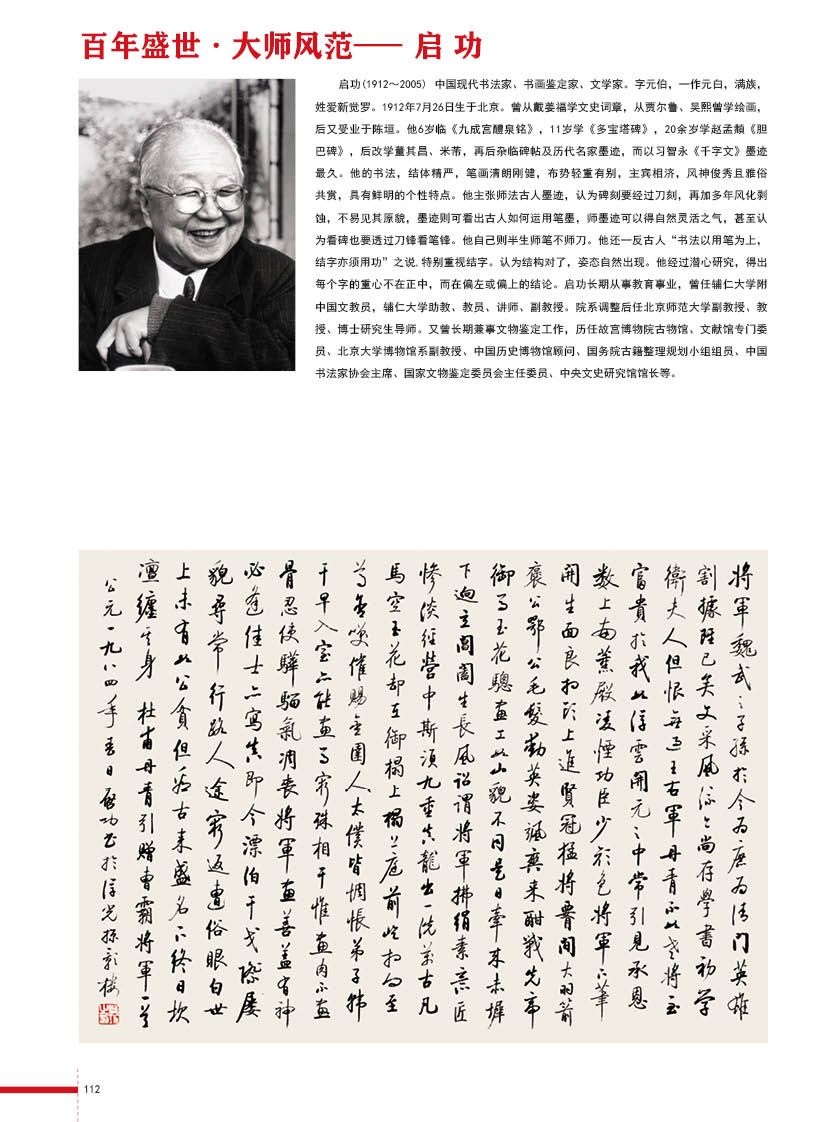 百年盛世·大师风范—— 启 功
启功(1912～2005) 中国现代书法家、书画鉴定家、文学家。字元伯，一作元白，满族，
姓爱新觉罗。1912年7月26日生于北京。曾从戴姜福学文史词章，从贾尔鲁、吴熙曾学绘画，
后又受业于陈垣。他6岁临《九成宫醴泉铭》，11岁学《多宝塔碑》，20余岁学赵孟頫《胆
巴碑》，后改学董其昌、米芾，再后杂临碑帖及历代名家墨迹，而以习智永《千字文》墨迹
最久。他的书法，结体精严，笔画清朗刚健，布势轻重有别，主宾相济，风神俊秀且雅俗
共赏，具有鲜明的个性特点。他主张师法古人墨迹，认为碑刻要经过刀刻，再加多年风化剥
蚀，不易见其原貌，墨迹则可看出古人如何运用笔墨，师墨迹可以得自然灵活之气，甚至认
为看碑也要透过刀锋看笔锋。他自己则半生师笔不师刀。他还一反古人“书法以用笔为上，
结字亦须用功”之说.特别重视结字。认为结构对了，姿态自然出现。他经过潜心研究，得出
每个字的重心不在正中，而在偏左或偏上的结论。启功长期从事教育事业，曾任辅仁大学附
中国文教员，辅仁大学助教、教员、讲师、副教授。院系调整后任北京师范大学副教授、教
授、博士研究生导师。又曾长期兼事文物鉴定工作，历任故宫博物院古物馆、文献馆专门委
员、北京大学博物馆系副教授、中国历史博物馆顾问、国务院古籍整理规划小组组员、中国
书法家协会主席、国家文物鉴定委员会主任委员、中央文史研究馆馆长等。
將軍魏武之子孫於今為庶為清門英雄
割據雖已矣文采風流今尚存學書初學
衛夫人但恨無過王右軍丹青不知老將至
富貴於我如浮雲開元之中常引見承恩
數上南薰殿凌煙功臣少顏色將軍下筆
開生面良相頭上進賢冠猛將腰間大羽箭
褒公鄂公毛髮動英姿颯爽來酣戰先帝
御馬玉花驄畫工如山貌不同是日牽來赤墀
下迥立閶闔生長風詔謂將軍拂絹素意匠
慘淡經營中斯須九重真龍出一洗萬古凡
馬空玉花却在御榻上榻上庭前屹相向至
尊含笑催賜金圉人太僕皆惆悵弟子韓
干早入室亦能畫馬窮殊相干惟畫肉不畫
骨忍使驊騮氣凋喪將軍畫善蓋有神
必逢佳士亦寫真即今漂泊干戈際屢
貌尋常行路人途窮返遭俗眼白世
上未有如公貧但看古來盛名下終日坎
壈纏其身 杜甫丹青引贈曹霸將軍一首
公元一九八四年 日啟功書於浮光掠影樓
112